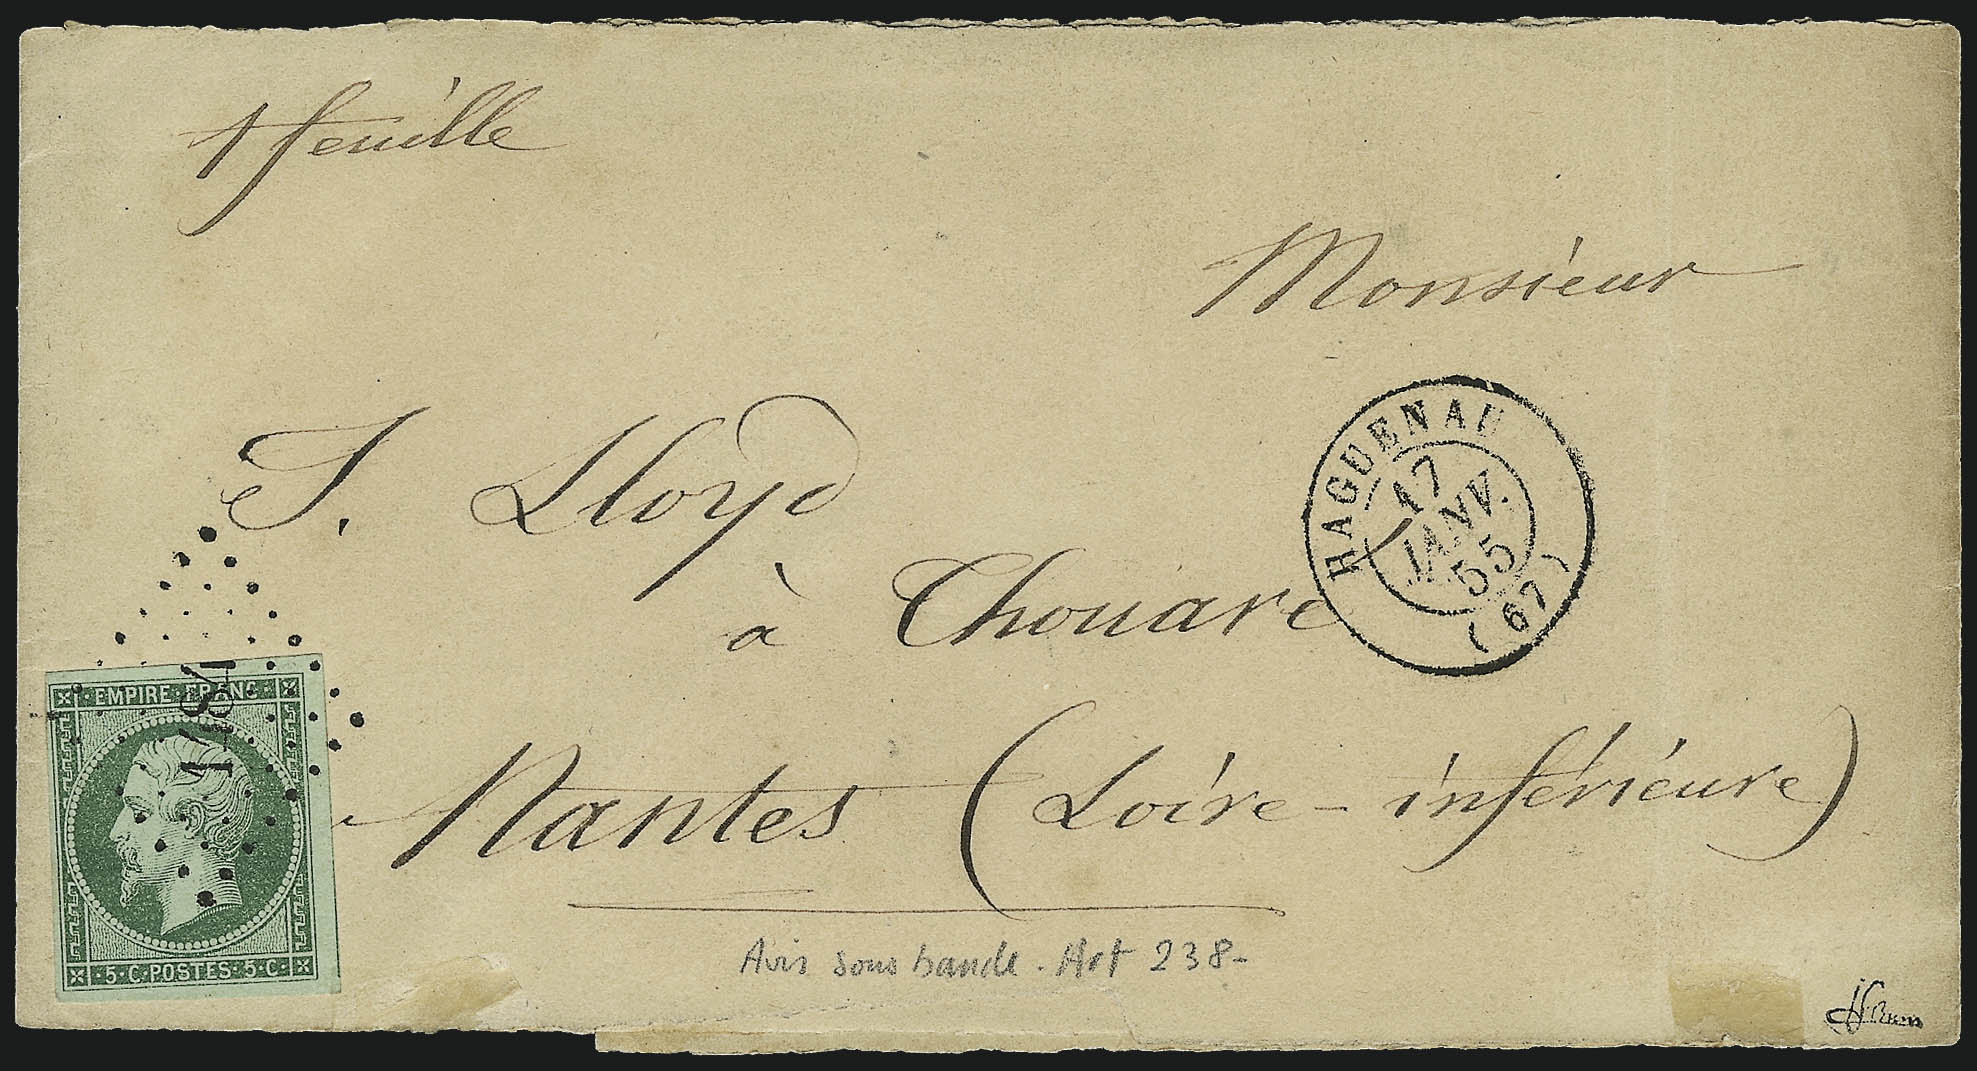 1 feuille
Monsieur
J. Lloyd
à Thouaré
Nantes (Loire-inférieure)
HAGUENAU
17
JANV.
55
(67)
EMPIRE FRANC
5·C·POSTES·5·C·
Avis sous bande. Art 238-